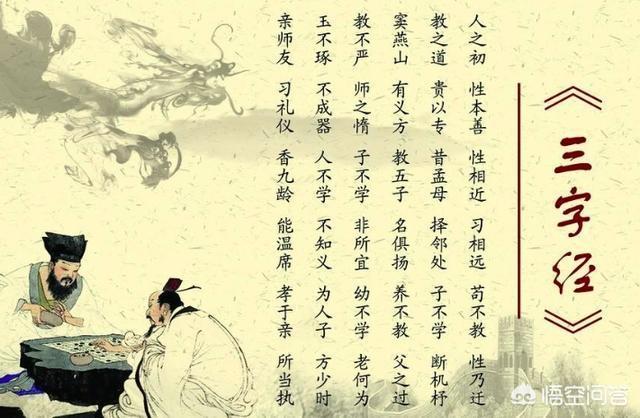 《三字经》
人之初 性本善 性相近 习相远 苟不教 性乃迁
教之道 贵以专 昔孟母 择邻处 子不学 断机杼
窦燕山 有义方 教五子 名俱扬 养不教 父之过
教不严 师之惰 子不学 非所宜 幼不学 老何为
玉不琢 不成器 人不学 不知义 为人子 方少时
亲师友 习礼仪 香九龄 能温席 孝于亲 所当执
悟空问答